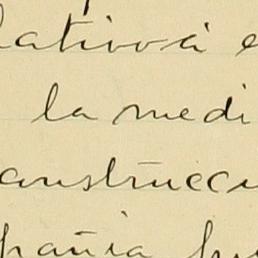 lativa á e
la medi
construcci
pañia